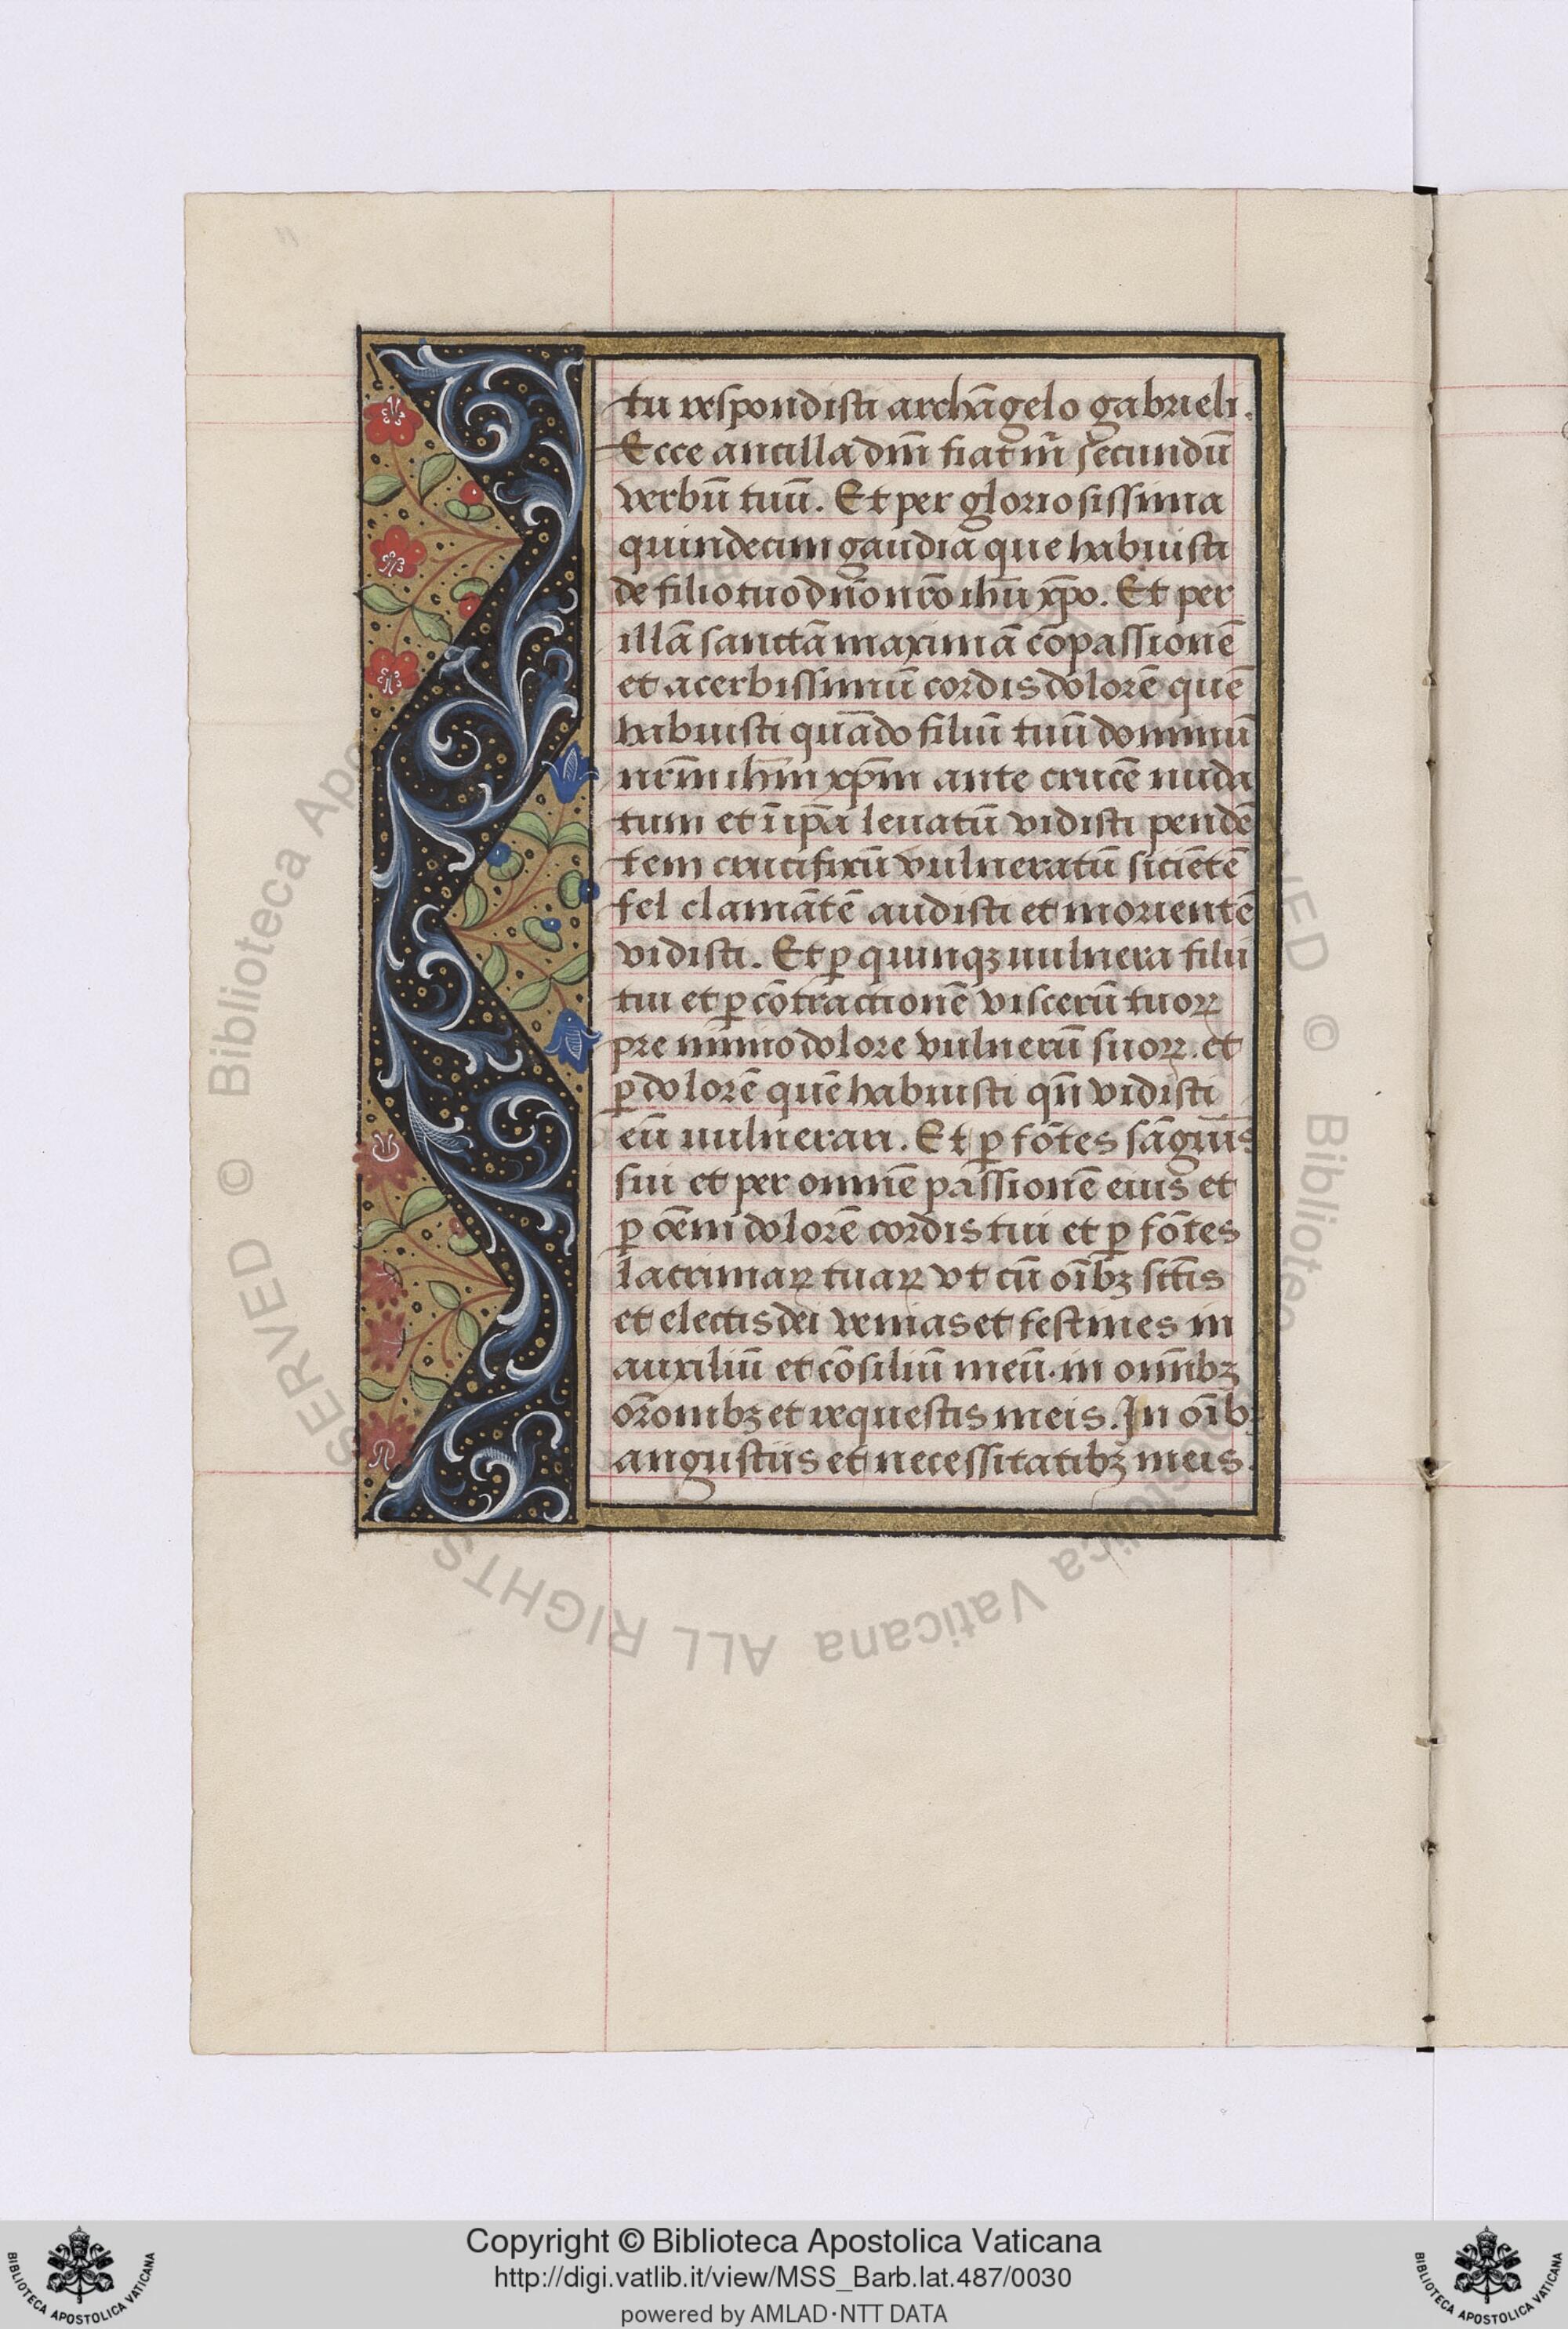 tu respondisti archãgelo gabrieli.
Ecce ancilla dñi fiat m̃ secundũ
verbũ tuũ. Et per gloriosissima
quindecim gaudia que habuisti
de filio tuo dño nr̃o ihũ xp̃o. Et per
illã sanctã maximã cõpassionẽ
et acerbissimũ cordis dolorẽ quẽ
habuisti quãdo filiũ tuũ dominũ
nr̃m ihm̃ xp̃m ante crucẽ nuda
tum et ĩ ip̃a leuatũ vidisti pendẽ
tem crucifixũ vulneratũ siciẽtẽ
fel clamãtẽ audisti et morientẽ
vidisti. Et ꝑ quinqꝫ uulnera filii
tui et ꝑ cõtractionẽ viscerũ tuoꝝ
pre nimio dolore vulnerũ suoꝝ. et
ꝑ dolorẽ quẽ habuisti qñ vidisti
eũ uulnerari. Et ꝑ fõtes sãguĩs
sui et per omnẽ passionẽ eius et
ꝑ oẽm dolorẽ cordis tui et ꝑ fõtes
lacrimaꝝ tuaꝝ vt cũ oĩbꝫ sctĩs
et electis dei venias et festines in
auxiliũ et cõsiliũ meũ. in omĩbꝫ
orõnibꝫ et requestis meis. In oĩbꝫ
angustiis et necessitatibꝫ meis.
SERVED © Biblioteca Apo
VED © Biblioteca
ostolica Vaticana ALL RIGHTS
Copyright © Biblioteca Apostolica Vaticana
http://digi.vatlib.it/view/MSS_Barb.lat.487/0030
powered by AMLAD·NTT DATA
BIBLIOTECA APOSTOLICA VATICANA
BIBLIOTECA APOSTOLICA VATICANA